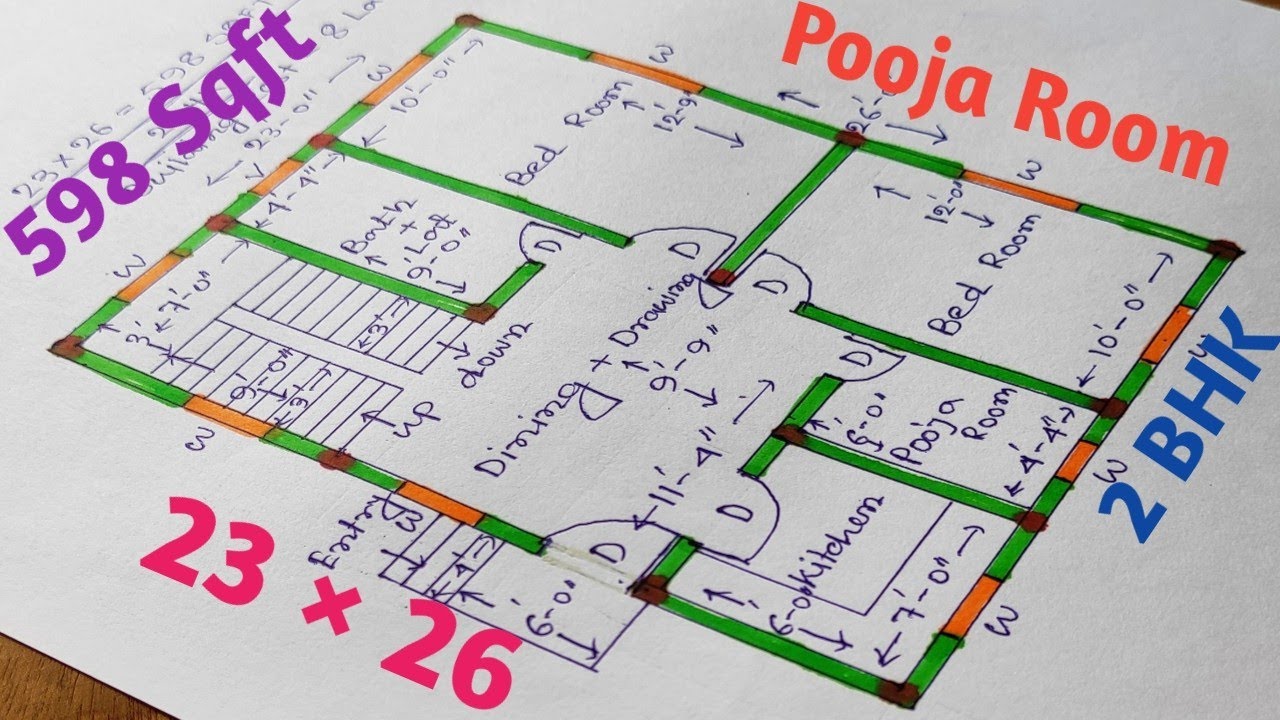 23 × 26 = 598 Sqft
598 Sqft
Pooja Room
2 BHK
23 × 26
23'-0"
W
W
10'-0"
Bed Room
12'-9"
W
12'-0"
Bed Room
10'-0"
V
4'-4"
Bath
+
Lat
9'-0"
D
D
D
W
3'
7'-0"
3'
down
9'-0"
3'
up
W
Dining + Drawing
9'-9"
11'-4"
D
6'-0"
Pooja
Room
4'-4"
W
D
Kitchen
6'-0"
7'-0"
W
Entry
W
4'
D
6'-0"